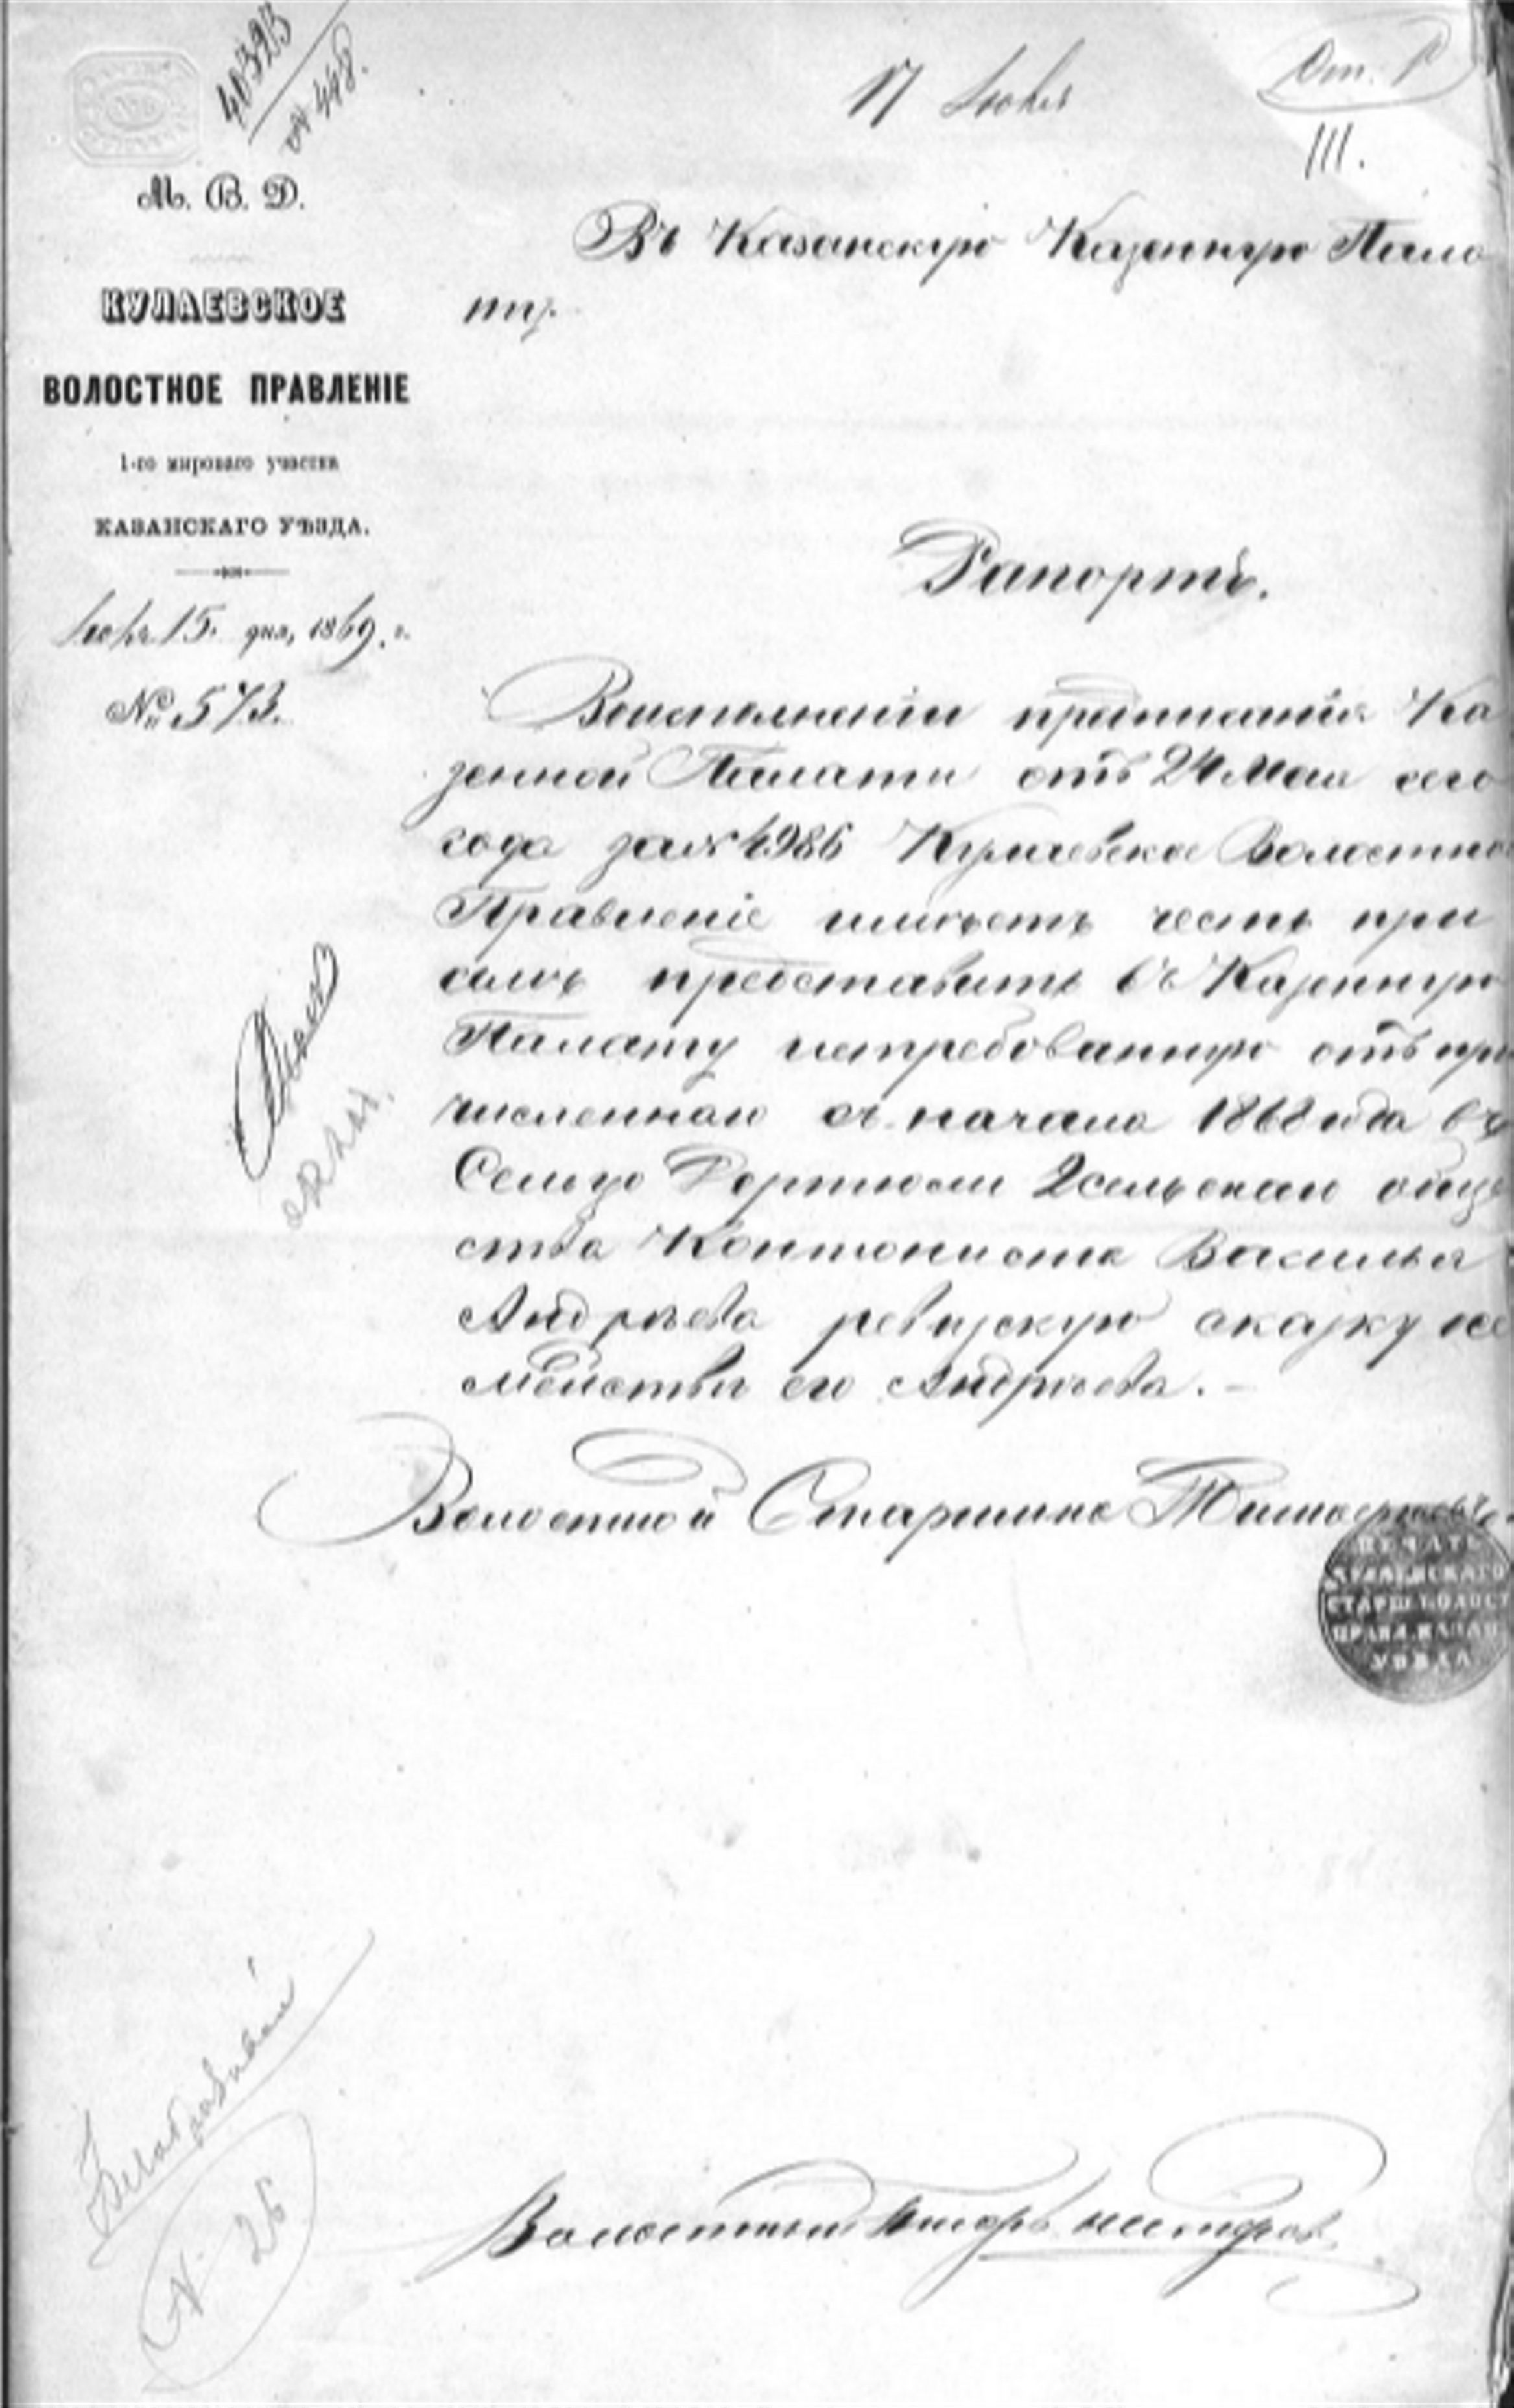 40393
№ 448.
17 Іюня
От. Р
III.
М. В. Д.
Въ Казанскую Казенную Пала
ту.
КУЛАЕВСКОЕ
ВОЛОСТНОЕ ПРАВЛЕНІЕ
1-го мироваго участка
КАЗАНСКАГО УѢЗДА.
Іюня 15 дня, 1869 г.
№ 573.
Рапортъ.
Воисполненіи предписанія Ка
зенной Палаты отъ 24 Мая сего
года за № 4986 Кулаевское Волостное
Правленіе имѣетъ честь при
семъ представить въ Казенную
Палату истребованную отъ при
численнаго съ начала 1868 года въ
Сельцо 2 сельскаго обще
ства Контониста Василья
Андрѣева ревизскую сказку се
мейства его Андрѣева. –
Волостной Старшина
ПЕЧАТЬ
КУЛАЕВСКАГО
СТАРШ. ВОЛОСТ
ПРАВЛ. КАЗАН.
УѢЗДА
№ 26
Волостный Писарь